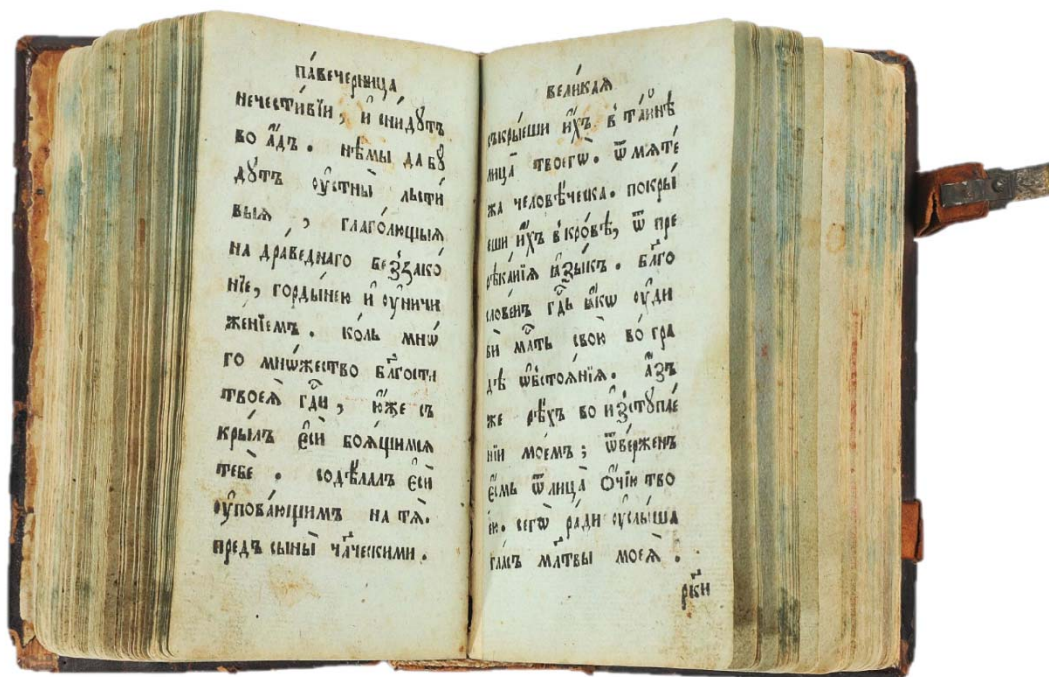 па́вечерница
нечести́вїи, и҆ сни́дꙋтъ
во а҆́дъ. нѣ́мы да бꙋ́
дꙋтъ ᲂу҆стны̀ льсти́
выѧ, глаго́лющыѧ
на драведнаго беззако́
нїе, горды́нею и҆ ᲂу҆ничи
же́нїемъ. ко́ль мнѡ́
го мно́жество бл҃гости
твоеѧ̀ гдⷭ҇и, ю҆́же съ
кры́лъ є҆сѝ боѧ́щимсѧ
тебѐ. содѣ́лалъ є҆сѝ
ᲂу҆пова́ющимъ на тѧ̀.
предъ сыны̀ чл҃ческими.
вели́каѧ
съкры́еши и҆́хъ в та́йнѣ
лица̀ твоегѡ̀. ѿ мѧте́
жа человѣ́ческа. покры́
еши и҆́хъ в кро́вѣ, ѿ пре
рѣка́нїѧ ѧ҆зы́къ. бл҃го
слове́нъ гдⷭ҇ь ꙗ҆́кѡ ᲂу҆ди
вѝ млⷭ҇ть свою̀ во гра́
дѣ ѡ҆бстоѧ́нїѧ. а҆́зъ
же рѣ́хъ во и҆зстꙋпле́
нїи мое́мъ; ѿве́рженъ
є҆́смь ѿ лица̀ ѻ҆́чїю тво
є́ю. сегѡ̀ ра́ди ᲂу҆слы́ша
гла́съ мл҃твы моеѧ̀.